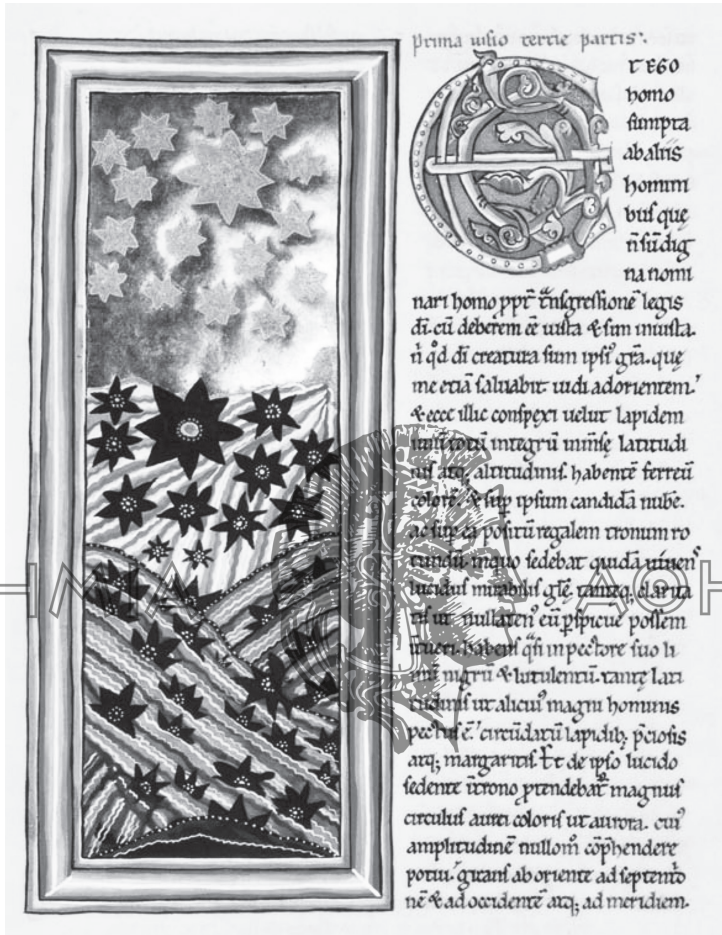 Prima uisio tercie partis:.
ET EGO
homo
sumpta
ab aliis
homini
bus quę
n̄ sū dig
na nomi
nari homo ꝓpt̄ t̄nsgressionē legis
dī. cū deberem ēē iusta & sum iniusta.
n̄ qd̄ dī creatura sum ipsi' gr̄a. quę
me etiā saluabit uidi ad orientem.
& ecce illic conspexi uelut lapidem
unū totū integrū inm̄sę latitudi
nis atq; altitudinis. habentē ferreū
colorē. & sup ipsum candidā nubē.
ac sup eā positū regalem tronum ro
tundū. in quo sedebat quidā uiuens
lucidus mirabilis glę. tantęq; clarita
tis ut nullaten' eū pspicue possem
intueri. habens q̄si in pectore suo li
mū nigrū & lutulentū. tantę lati
tudinis ut alicui' magni hominis
pectus ē. circūdatū lapidib; p̄ciosis
atq; margaritis. Et de ipso lucido
sedente ī trono ptendebat̄ magnus
circulus aurei coloris ut aurora. cui'
amplitudinē nullom̄ cōp̄hendere
potui. girans ab oriente ad septent̄o
nē & ad occidentē atq; ad meridiem.
ΗΜΙΑ ΑΘΗ